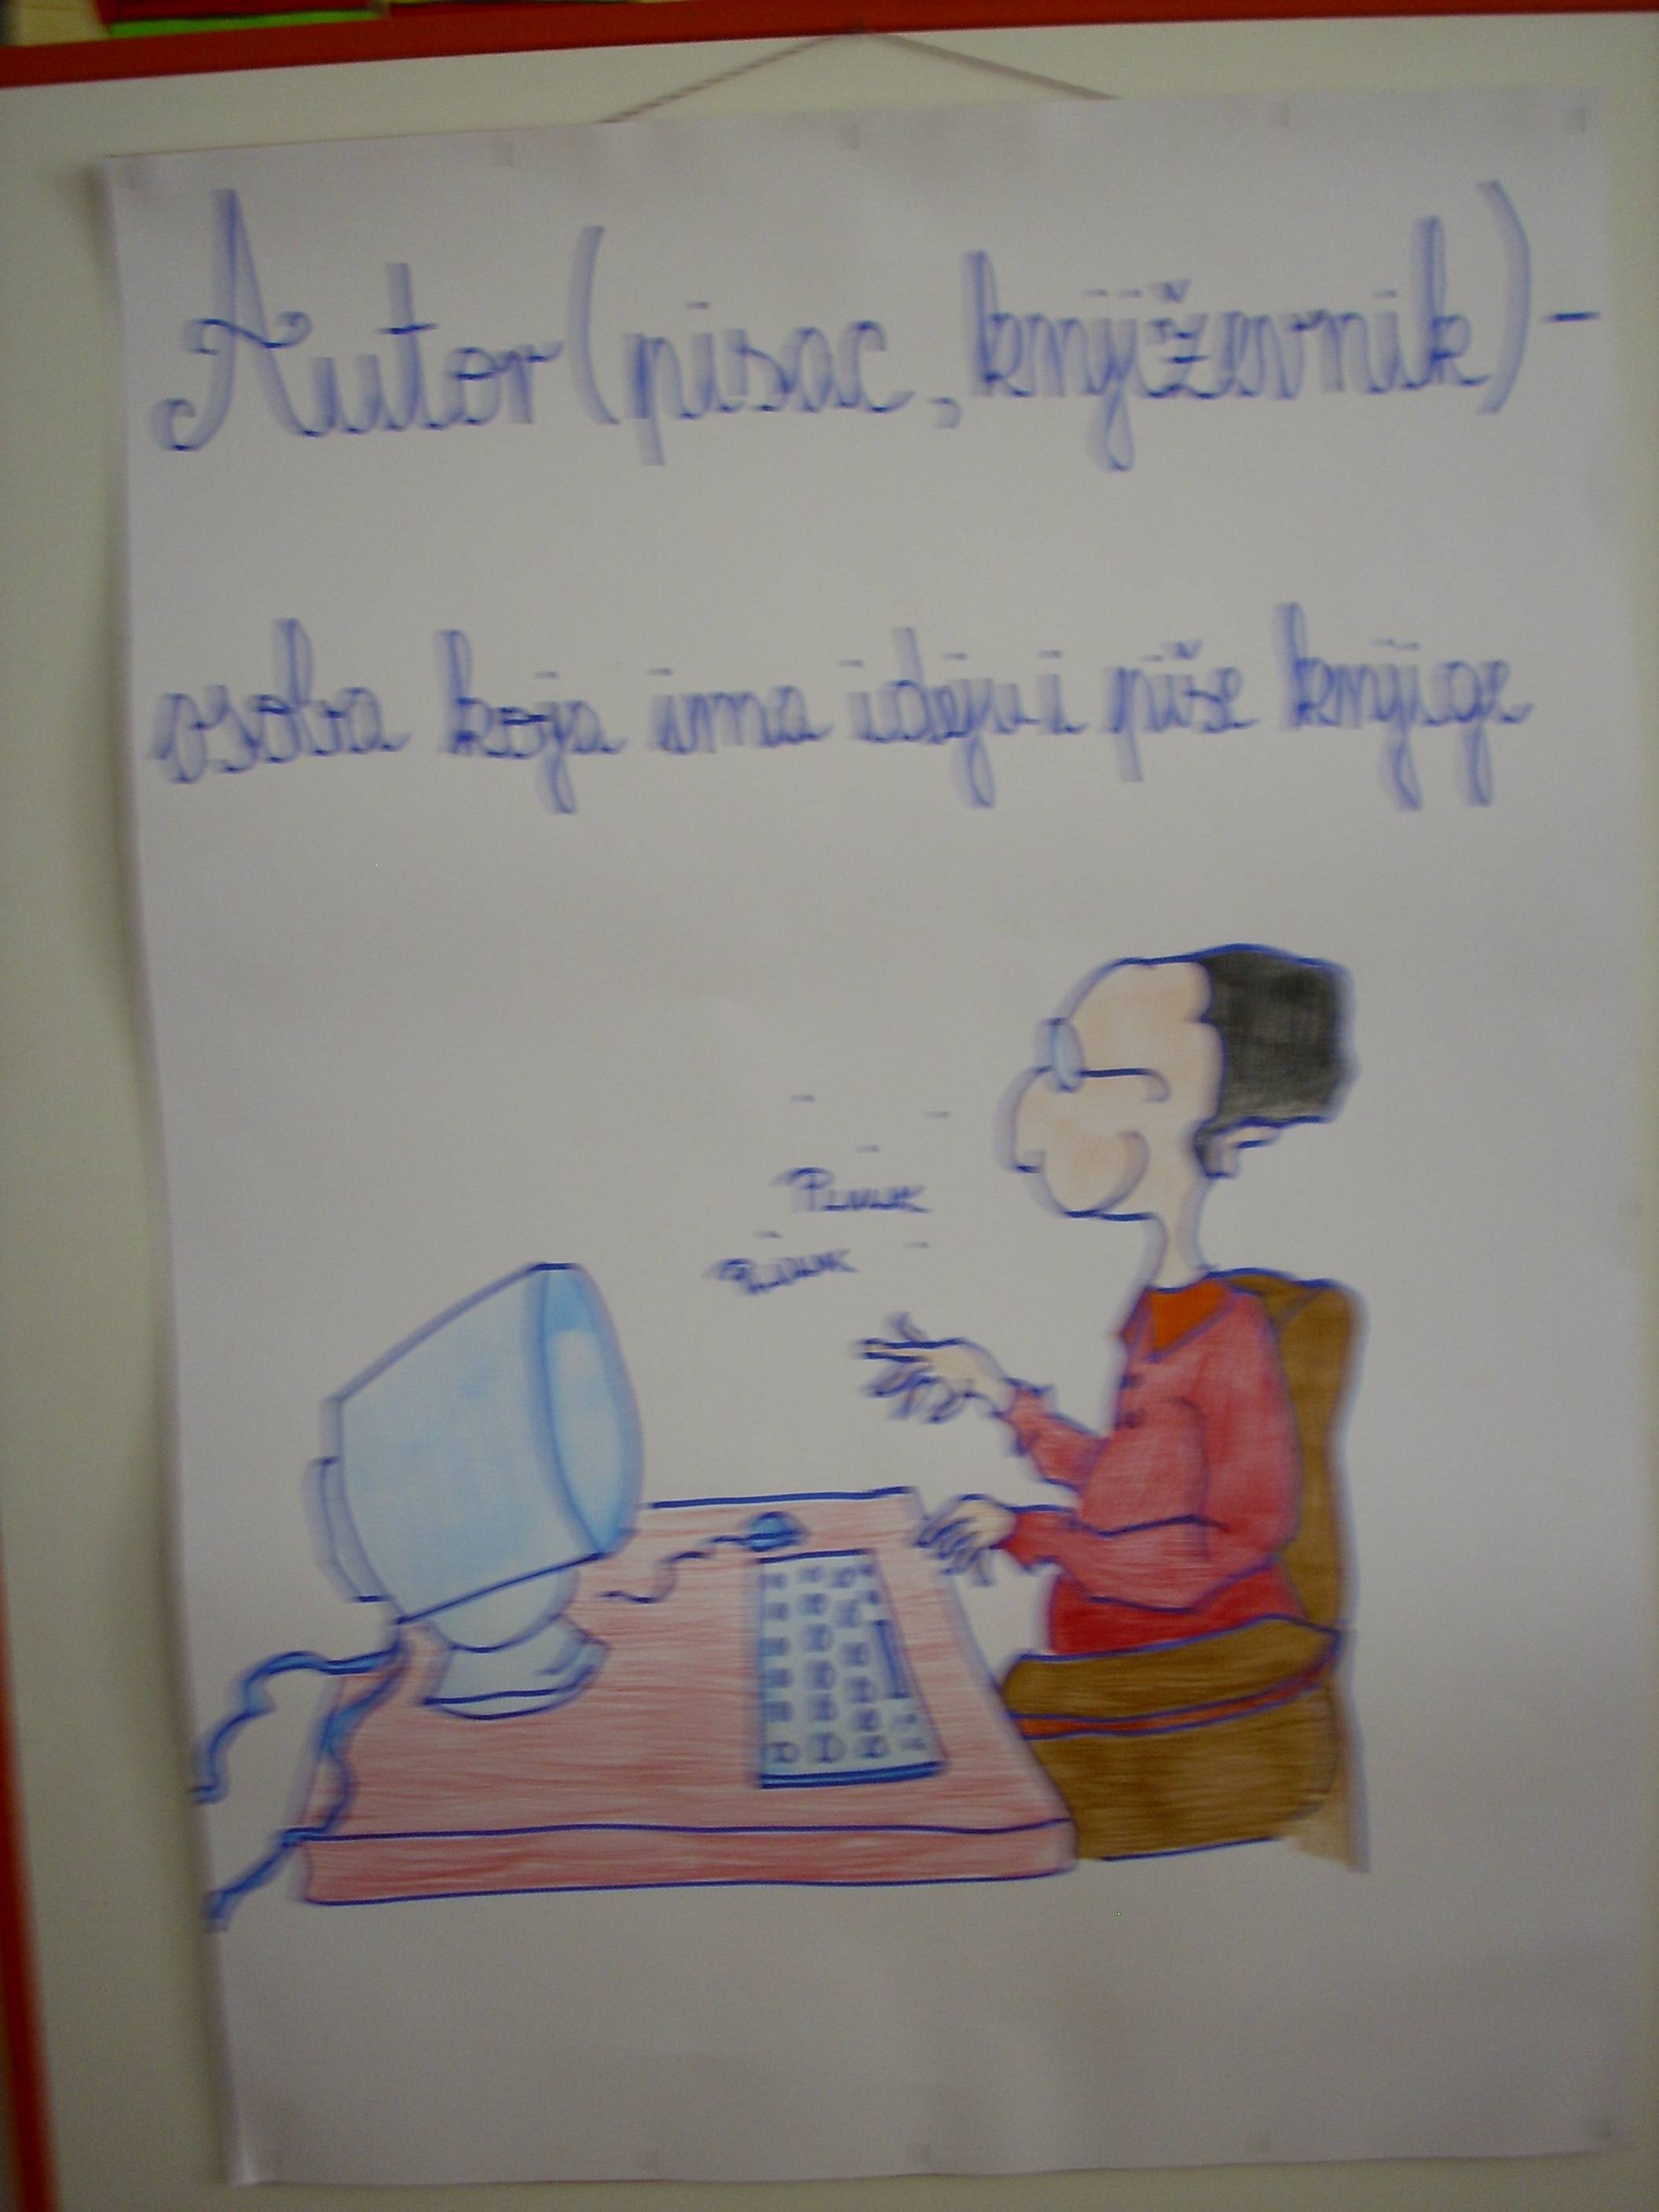 Autor (pisac, književnik) -
osoba koja ima ideju i piše knjige
Plink
Plink